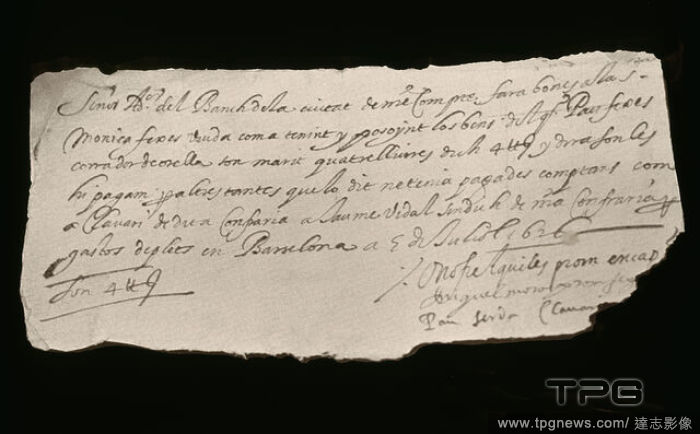 Señor Ador del Banch dela ciutat de mō Compte fara bones a la Sra
Monica fexes viuda com a tenint y possoynt los bens del qº Pau fexes
corrador de orella son marit quatre lliures dich 4 ℔ y dira son les
hi pagam per altres tantes que lo dit ne tenia pagades comptans com
a Clavari de dita Confraria a Jaume Vidal sindich de mia Confraria per
gastos de plets en Barcelona a 5 de Juliol 1626
Son 4 ℔
Onofre Aquiles prom en cap
Miquel moro prom
Pau Serda Clavari
TPG
www.tpgnews.com/ 達志影像